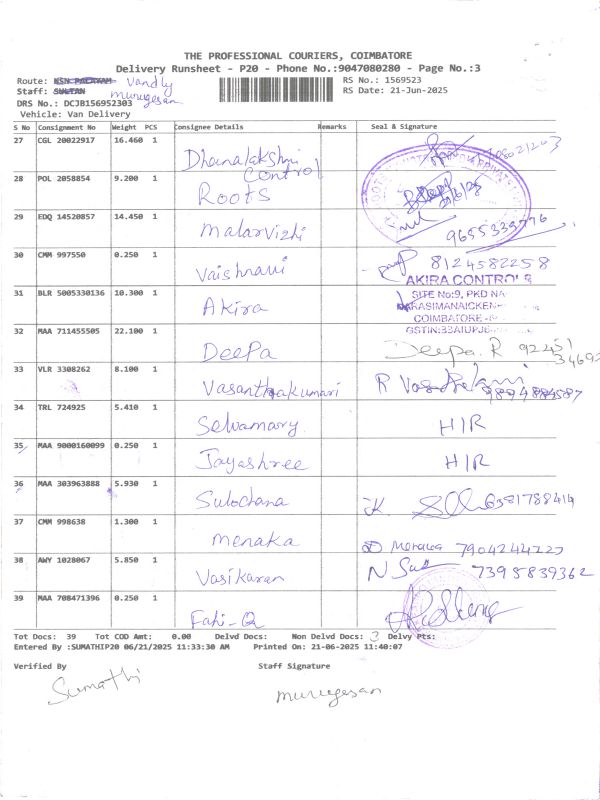 THE PROFESSIONAL COURIERS, COIMBATORE
Delivery Runsheet - P20 - Phone No.:9047080280 - Page No.:3
Route: KSN PALAYAM Vandly RS No.: 1569523
Staff: SULTAN murugesan RS Date: 21-Jun-2025
DRS No.: DCJB156952303
Vehicle: Van Delivery
S No Consignment No Weight PCS Consignee Details Remarks Seal & Signature
27 CGL 20022917 16.460 1 Dhanalakshmi Control
28 POL 2058854 9.200 1 Roots
29 EDQ 14520857 14.450 1 Malarvizhi 9655339796
30 CMM 997550 0.250 1 Vaishnavi 8124582258
AKIRA CONTROLS
SITE No:9, PKD NA
31 BLR 5005330136 10.300 1 Akira NARASIMANAICKEN
COIMBATORE
32 MAA 711455505 22.100 1 DeePa Deepa. R
33 VLR 3308262 8.100 1 Vasanthakumari
34 TRL 724925 5.410 1 Selvamary H/R
35 MAA 9000160099 0.250 1 Jayashree H/R
36 MAA 303963888 5.930 1 Sulochana 6381788414
37 CMM 998638 1.300 1 menaka Menaka 7904244227
38 AWY 1028067 5.850 1 Vasikaran 7395839362
39 MAA 708471396 0.250 1
Tot Docs: 39 Tot COD Amt: 0.00 Delvd Docs: Non Delvd Docs: 3 Delvy Pts:
Entered By :SUMATHIP20 06/21/2025 11:33:30 AM Printed On: 21-06-2025 11:40:07
Verified By Staff Signature
Sumathi murugesan